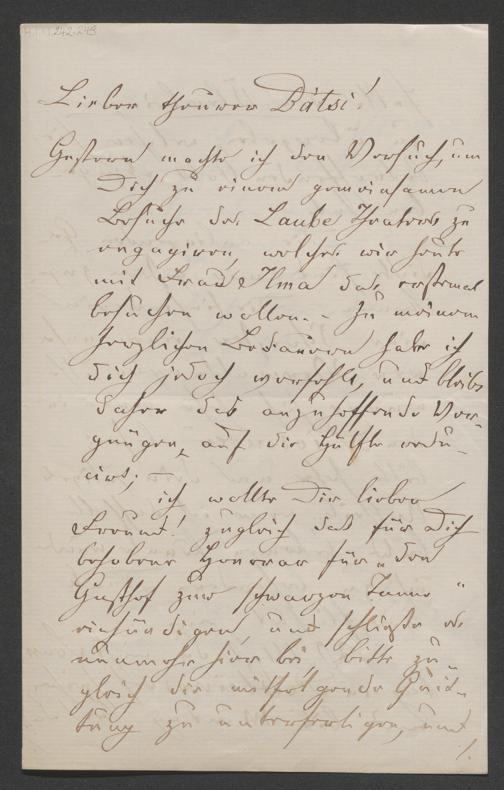 242.243
Lieber theurer Bátsi!
Gestern machte ich den Versuch, um
Dich zu einem gemeinsamen
Besuche des Laube Theaters zu
engagiren, welches wir heute
mit Frau Ilma das erstemal
besuchen wollen. – Zu meinem
herzlichen Bedauern habe ich
dich jedoch verfehlt, und bleibt
daher das anzuhoffende Ver-
gnügen, auf die Hälfte redu-
cirt; –
ich wollte Dir lieber
Freund! zugleich das für Dich
behobene Honorar für „den
Gasthof zur schwarzen Tanne"
einhändigen, und schließe es
nunmehr hier bei, bitte zu-
gleich die mitfolgende Quit-
tung zu unterfertigen, und
/.